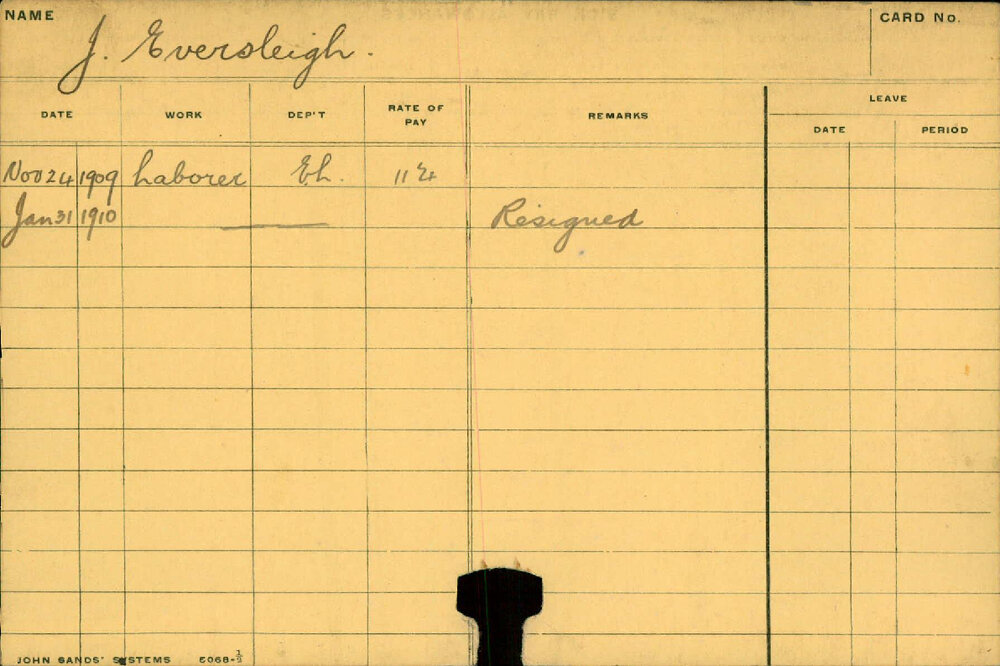 NAME J. Eversleigh. CARD No.
DATE WORK DEP'T RATE OF PAY REMARKS LEAVE
DATE PERIOD
Nov 24 1909 Laborer Eh.
Jan 31 1910 Resigned
JOHN SANDS' SYSTEMS